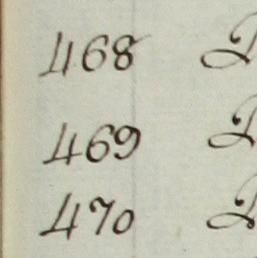 468
469
470